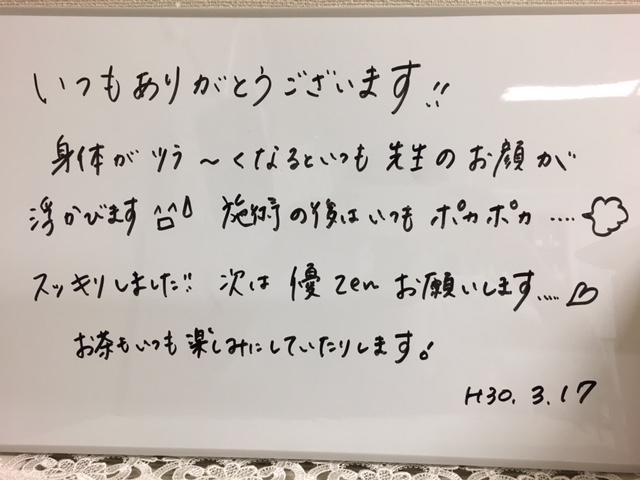 いつもありがとうございます!!
身体がツラ〜くなるといつも先生のお顔が
浮かびます^ロ^ 施術の後はいつもポカポカ....
スッキリしました!! 次は優zenお願いします....♡
お茶もいつも楽しみにしていたりします!
H30.3.17